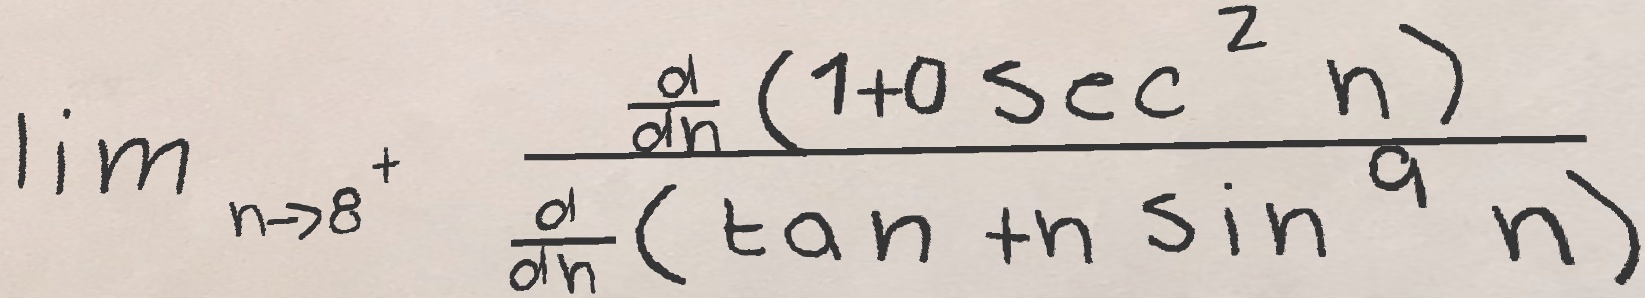 \lim_{n \to 8^+} \frac{\frac{d}{dn}(1+0 \sec^2 n)}{\frac{d}{dn}(\tan + n \sin^9 n)}